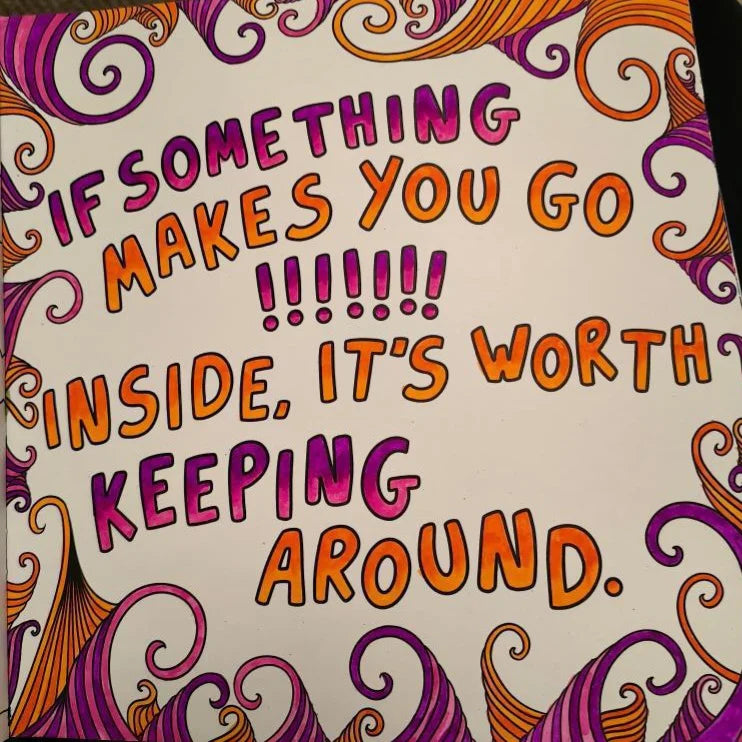 IF SOMETHING
MAKES YOU GO
!!!!!!!
INSIDE, IT'S WORTH
KEEPING
AROUND.